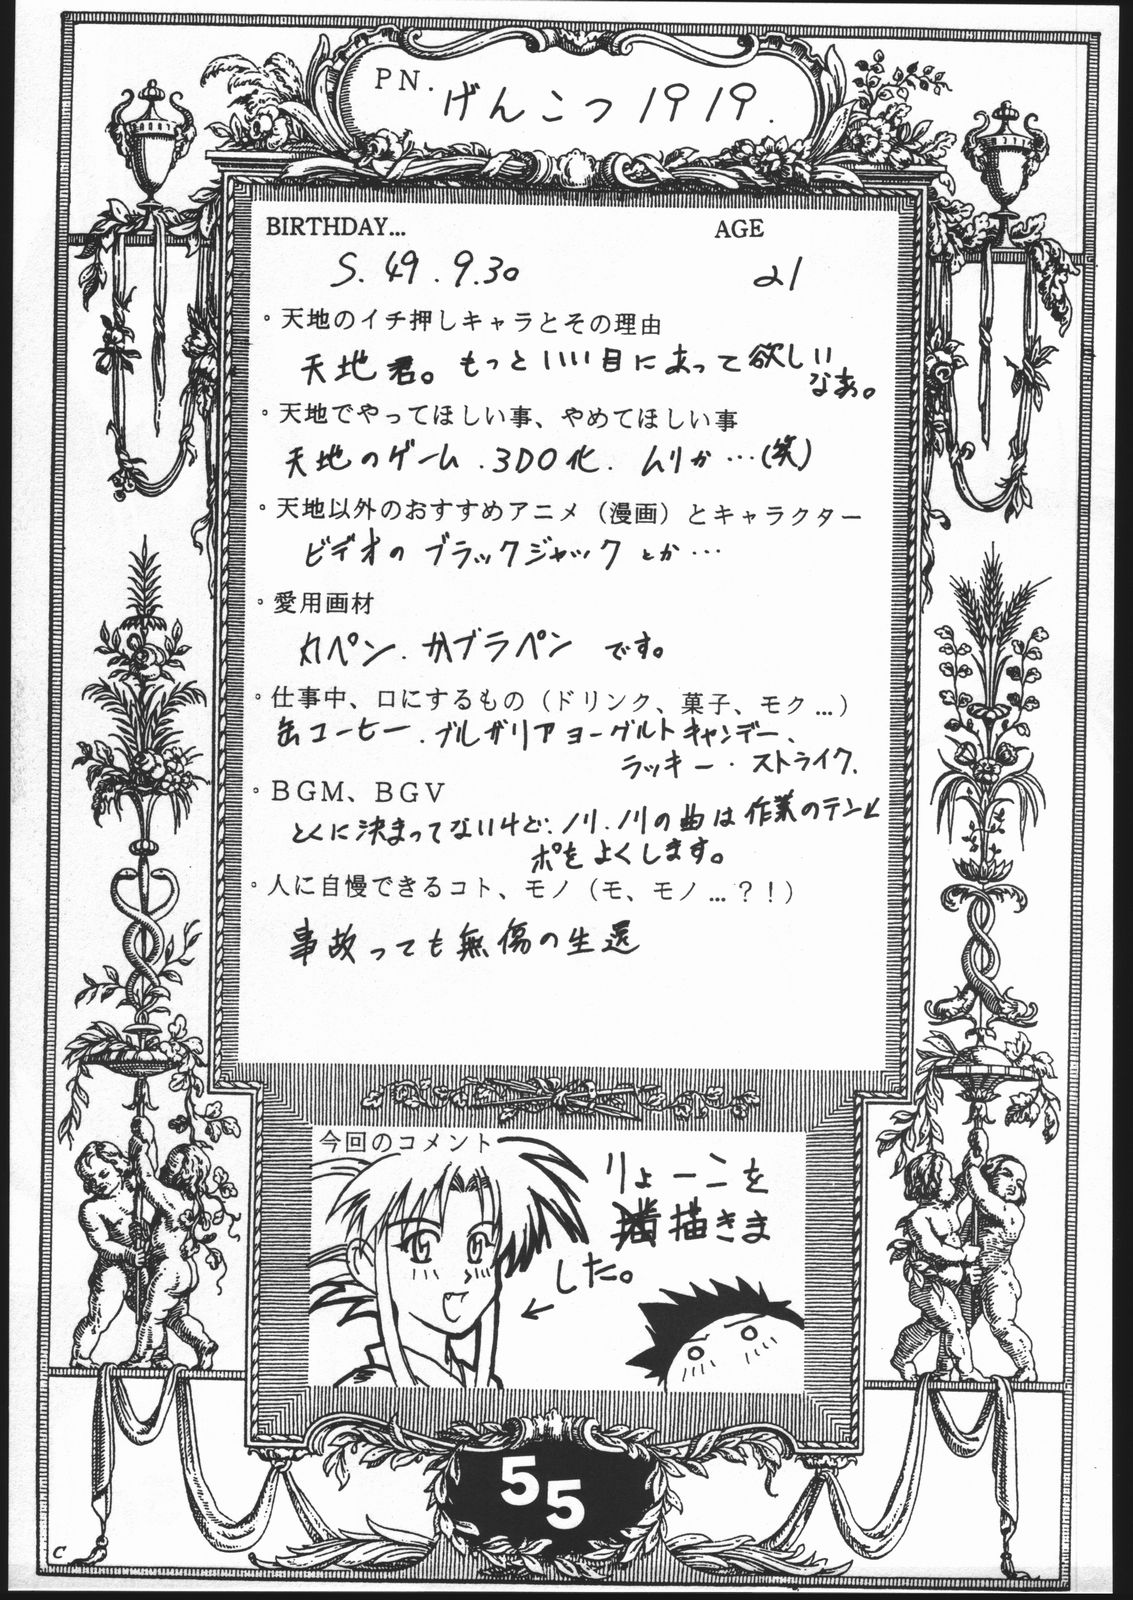 PN. げんこつ1919.
BIRTHDAY... AGE
S. 49. 9. 30 21
・天地のイチ押しキャラとその理由
天地君。もっといい目にあって欲しい
なあ。
・天地でやってほしい事、やめてほしい事
天地のゲーム.3DO化. ムリか…(笑)
・天地以外のおすすめアニメ（漫画）とキャラクター
ビデオのブラックジャックとか…
・愛用画材
丸ペン.カブラペン です。
・仕事中、口にするもの（ドリンク、菓子、モク…）
缶コーヒー.ブルガリアヨーグルトキャンデー、
ラッキー・ストライク.
・BGM、BGV
とくに決まってないけど.ノリ.ノリの曲は作業のテン
ポをよくします。
・人に自慢できるコト、モノ（モ、モノ…？！）
事故っても無傷の生還
今回のコメント
りょーこを
描きま
した。
←
55
C